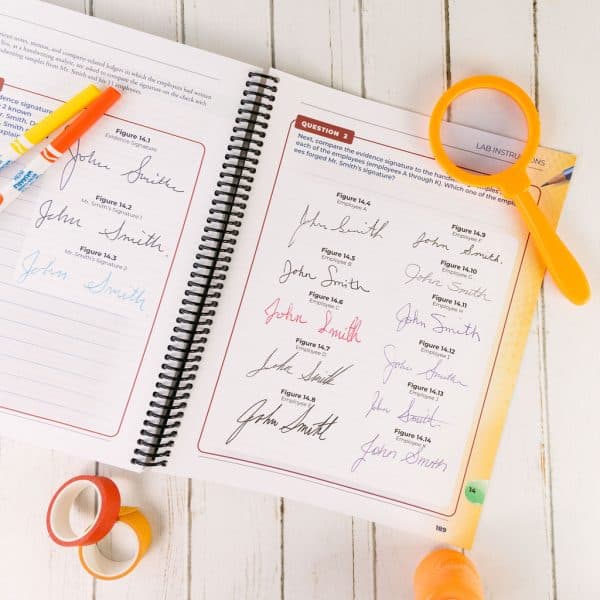 handwriting analyst, are asked to compare the signature on the check with
handwriting samples from Mr. Smith and his 11 employees.
evidence signature
2 known
Mr. Smith
Figure 14.1
Evidence Signature
John Smith
Figure 14.2
Mr. Smith's Signature 1
John Smith.
Figure 14.3
Mr. Smith's Signature 2
John Smith
LAB INSTRUCTIONS
QUESTION 2
Next, compare the evidence signature to the
each of the employees (employees A through K). Which one of the
ees forged Mr. Smith's signature?
Figure 14.4
Employee A
John Smith
Figure 14.5
Employee B
John Smith
Figure 14.6
Employee C
John Smith
Figure 14.7
Employee D
John Smith
Figure 14.8
Employee E
John Smith
Figure 14.9
Employee F
John Smith.
Figure 14.10
Employee G
John Smith
Figure 14.11
Employee H
John Smith
Figure 14.12
Employee I
John Smith
Figure 14.13
Employee J
John Smith
Figure 14.14
Employee K
John Smith
14
189